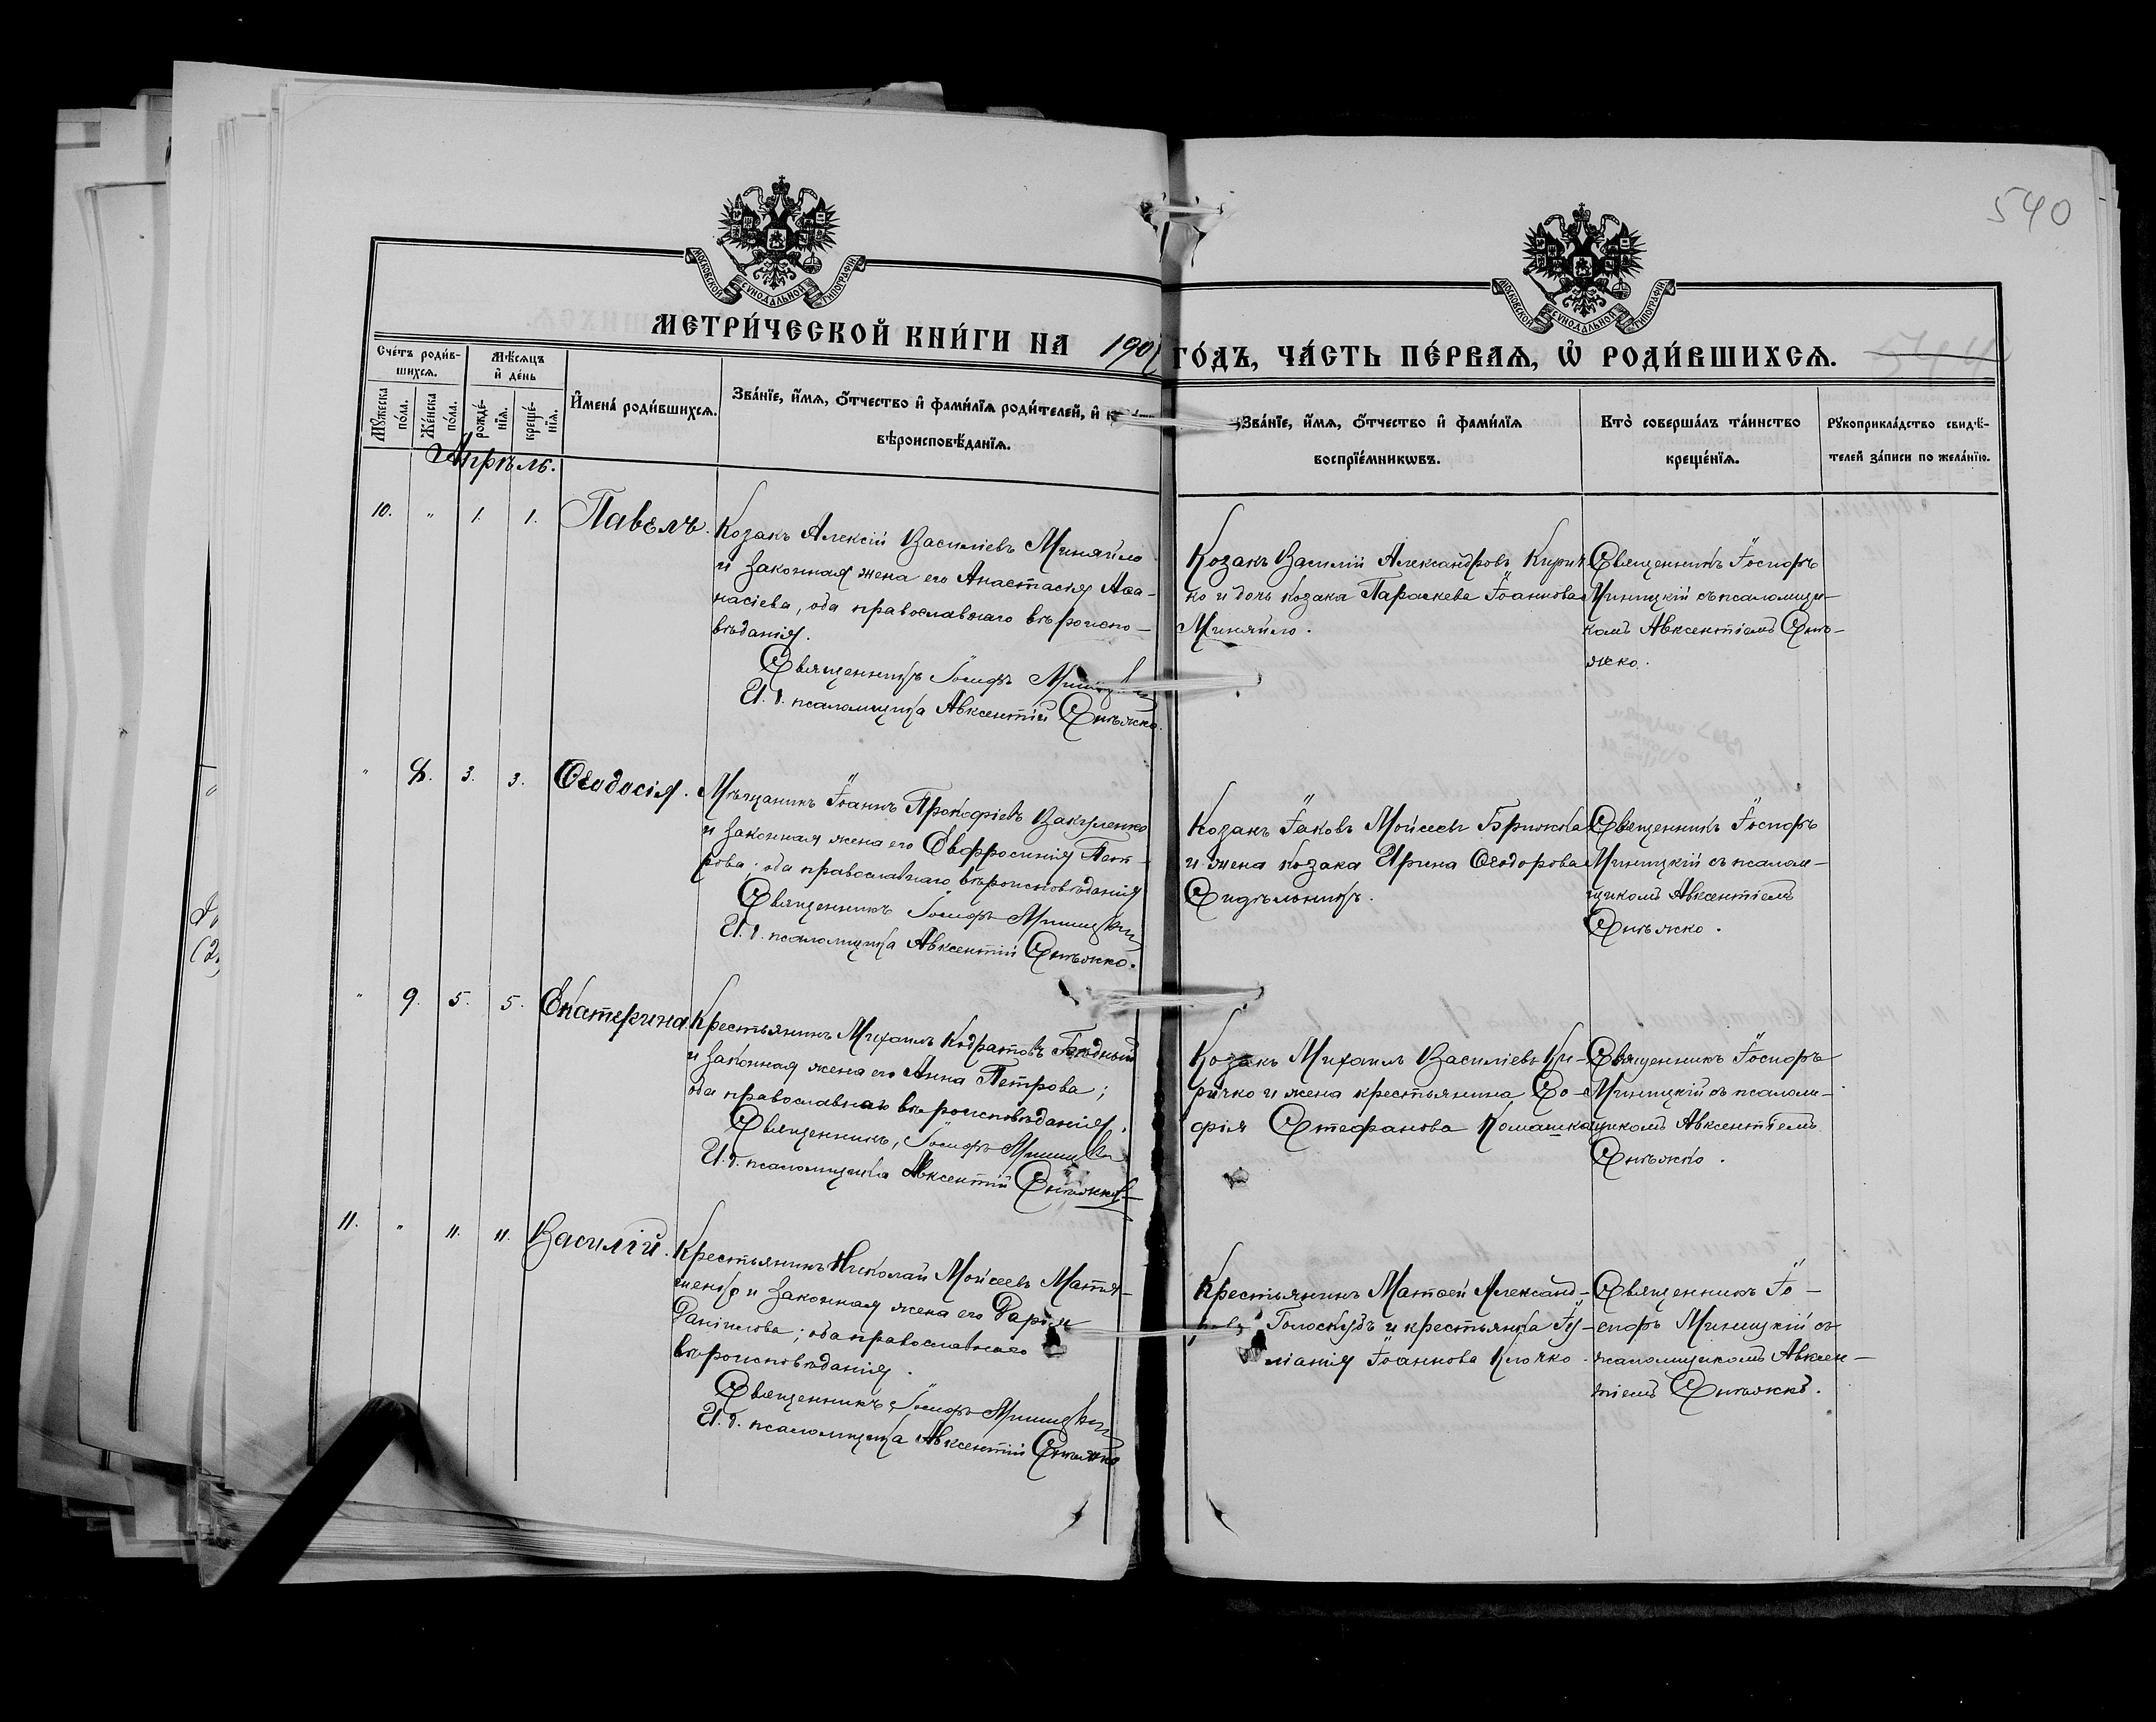 540
МОСКОВСКОЙ СѴНОДАЛЬНОЙ ТИПОГРАФІИ
МОСКОВСКОЙ СѴНОДАЛЬНОЙ ТИПОГРАФІИ
МЕТРИ́ЧЕСКОЙ КНИ́ГИ НА 190
ГО́ДЪ, ЧА́СТЬ ПЕ́РВАѦ, Ѡ҆ РОДИ́ВШИХСѦ.
Сче́тъ роди́в-
шихсѧ.
Мꙋ́жеска по́ла.
Же́нска по́ла.
Мѣ́сѧцъ
и҆ де́нь
рожде́-нїѧ.
креще́-нїѧ.
И҆мена̀ роди́вшихсѧ.
Зва́нїе, и҆́мѧ, ѻ҆́тчество и҆ фами́лїѧ роди́телей, и҆
вѣроисповѣ́данїѧ.
Зва́нїе, и҆́мѧ, ѻ҆́тчество и҆ фами́лїѧ
воспрїе́мникѡвъ.
Кто̀ соверша́лъ та́инство
креще́нїѧ.
Рꙋкоприкла́дство свидѣ́-
телей за́писи по жела́нїю.
Апрѣль.
10. " 1. 1. Павелъ.
Козакъ Алексій Василіевъ Миняйло
и законная жена его Анастасія Аѳа-
насіева, оба православнаго вѣроиспо-
вѣданія.
Священникъ Іосифъ Миницкій
И. д. псаломщика Авксентій Снѣжко.
Козакъ Василій Александровъ Кирич
ко и дочь козака Параскева Іоаннова
Миняйло.
Священникъ Іосифъ
Миницкій съ псаломщи-
комъ Авксентіемъ Снѣ-
жко.
" 8. 3. 3. Ѳеодосія.
Мѣщанинъ Іоаннъ Прокофіевъ Вакуленко
и законная жена его Евфросинія Пет-
рова; оба православнаго вѣроисповѣданія
Священникъ Іосифъ Миницкій
И. д. псаломщика Авксентій Снѣжко.
Козакъ Іаковъ Моисеевъ Брижка
и жена козака Ирина Ѳеодорова
Сидѣльникъ.
Священникъ Іосифъ
Миницкій съ псалом-
щикомъ Авксентіемъ
Снѣжко.
" 9. 5. 5. Екатерина
Крестьянинъ Михаилъ Кодратовъ
и законная жена его Анна Петрова;
оба православнаго вѣроисповѣданія.
Священникъ, Іосифъ Миницкій
И. д. псаломщика Авксентій Снѣжко
Козакъ Михаилъ Василіевъ Ки-
ричко и жена крестьянина Со-
фія Стефанова Комашка
Священникъ Іосифъ
Миницкій съ псалом-
щикомъ Авксентіемъ
Снѣжко.
11. " 11. 11. Василій.
Крестьянинъ Николай Моисеевъ Матя-
шенко и законная жена его Дарія
Даніилова; оба православнаго
вѣроисповѣданія.
Священникъ Іосифъ Миницкій
И. д. псаломщика Авксентій Снѣжко
Крестьянинъ Матѳей Александ-
ровъ Голоскубъ и крестьянка Іу-
ліанія Іоаннова Клочко.
Священникъ Іо-
сифъ Миницкій съ
псаломщикомъ Авксен-
тіемъ Снѣжко.